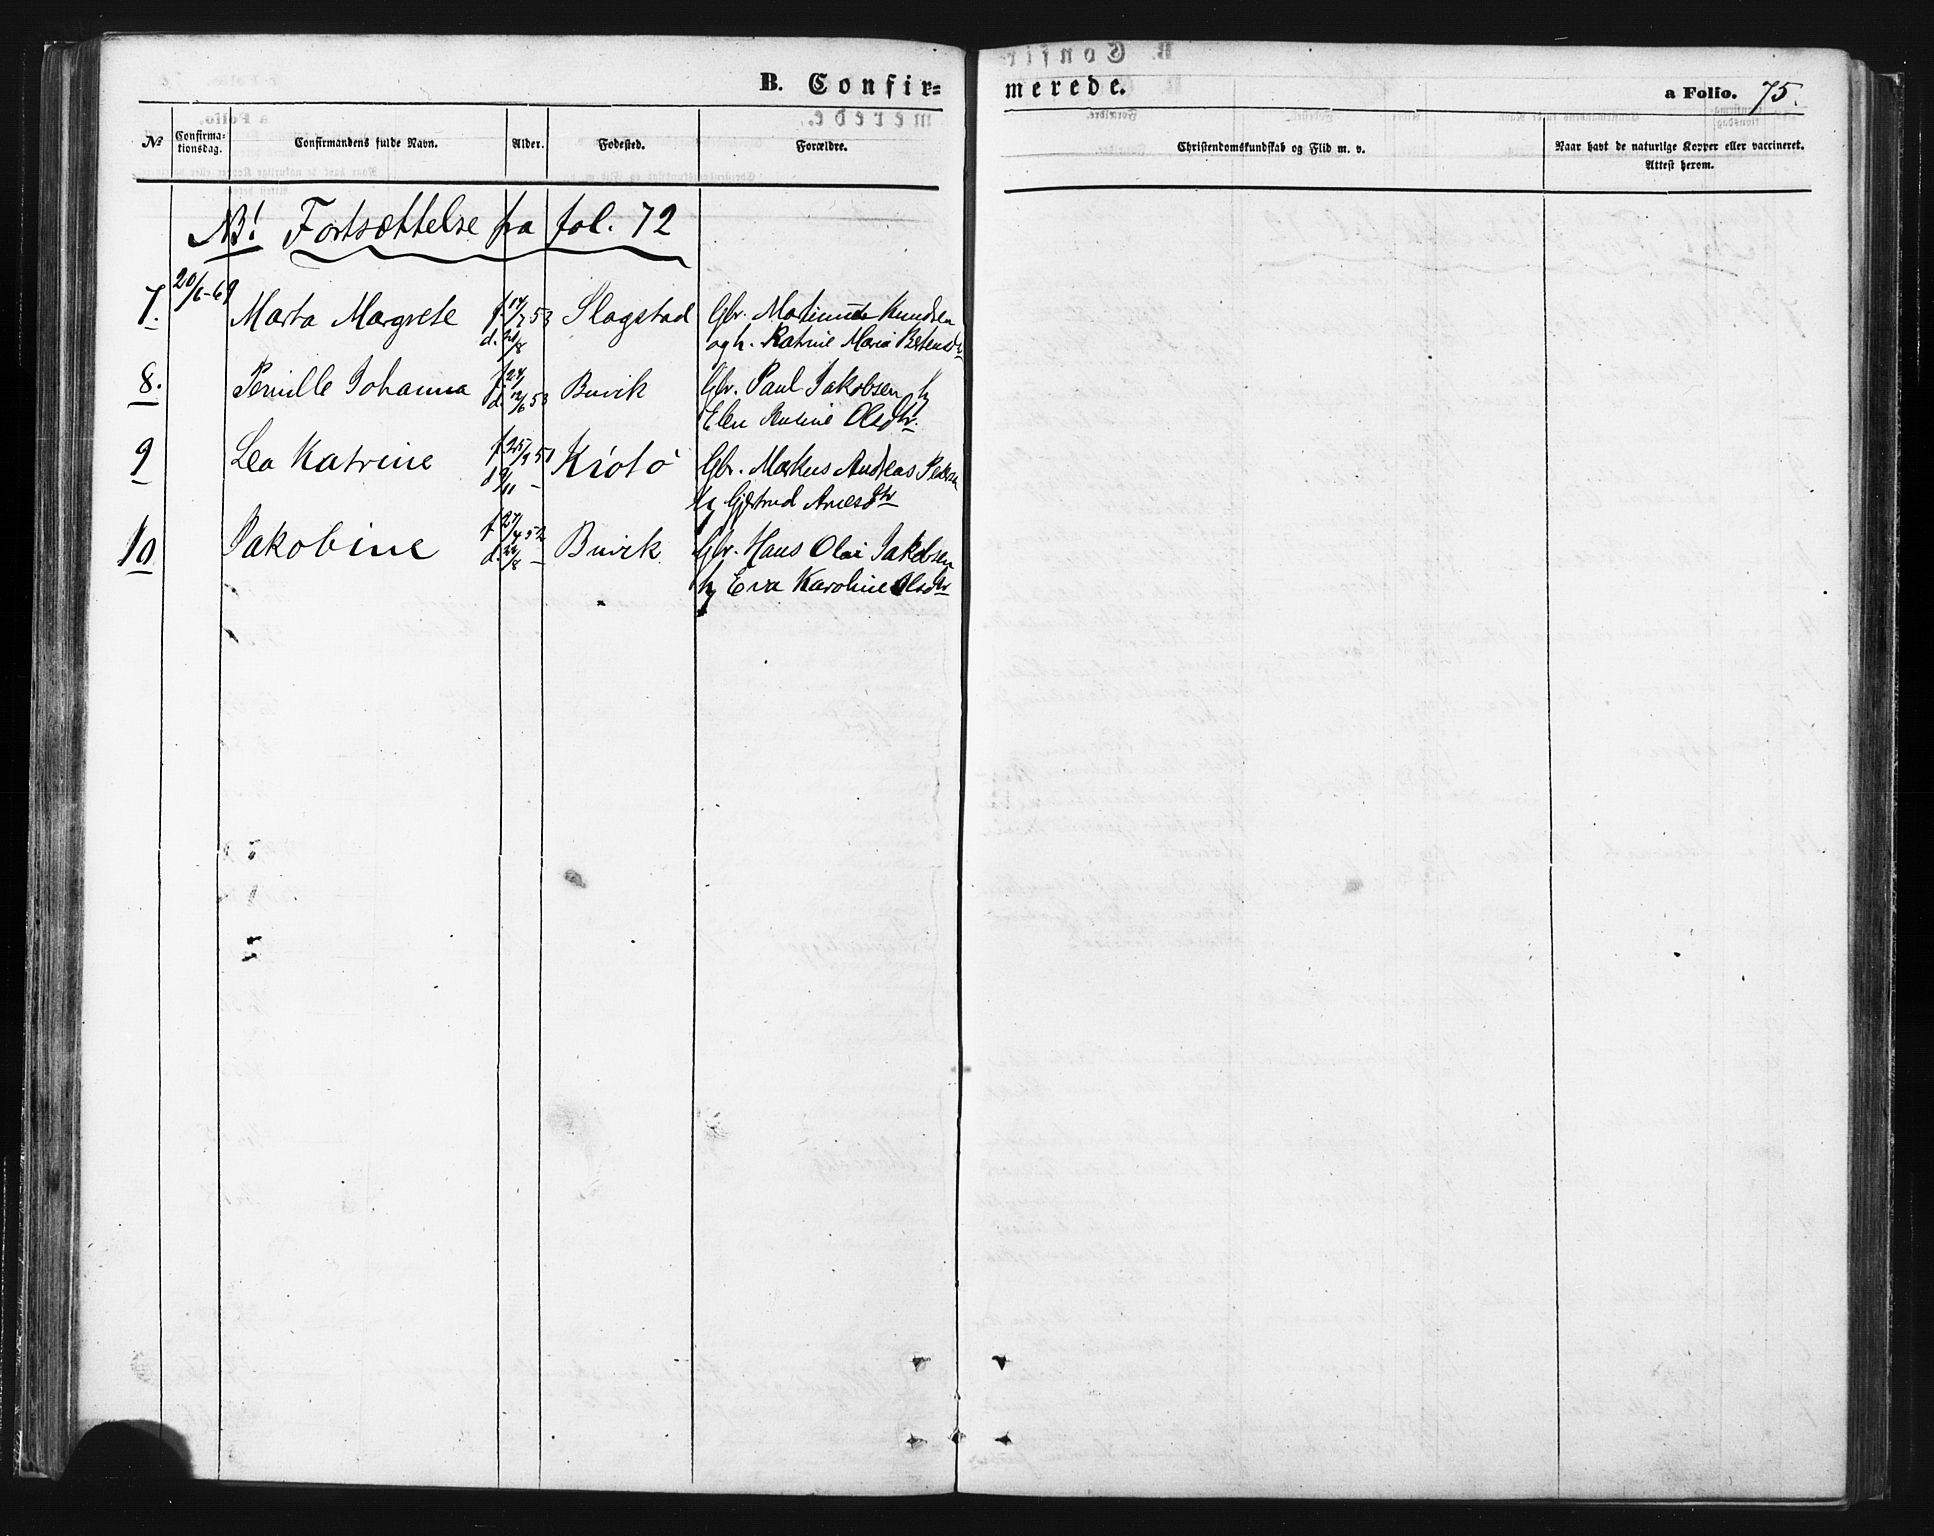 B. Confir=
merede.
a Folio. 75.
№
Confirma=
tionsdag.
Confirmandens fulde Navn.
Alder.
Fødested.
Forældre.
Christendomskundskab og Flid m. v.
Naar havt de naturlige Kopper eller vaccineret.
Attest herom.
NB! Fortsættelse fra fol. 72
7. 20/6-69 Marta Margrete f 14/7 53 Slagstad Gbr. Martinus Knudsen
d. 21/8 og h. Katrine Maria
8. Pernille Johanna f 24/ Buvik Gbr. Paul Jakobsen h
d. 12/6 53 Elen Olsdtr.
9 Lea Katrine f 25/9 51 Kiøtø Gbr. Markus Andreas Pedersen
d 9/11 - h Gjertrud Arnesdtr
10 Jakobine f 27/4 52 Buvik Gbr. Hans Olai Jakobsen
d. 22/8 - h Eva Karoline Olsdtr